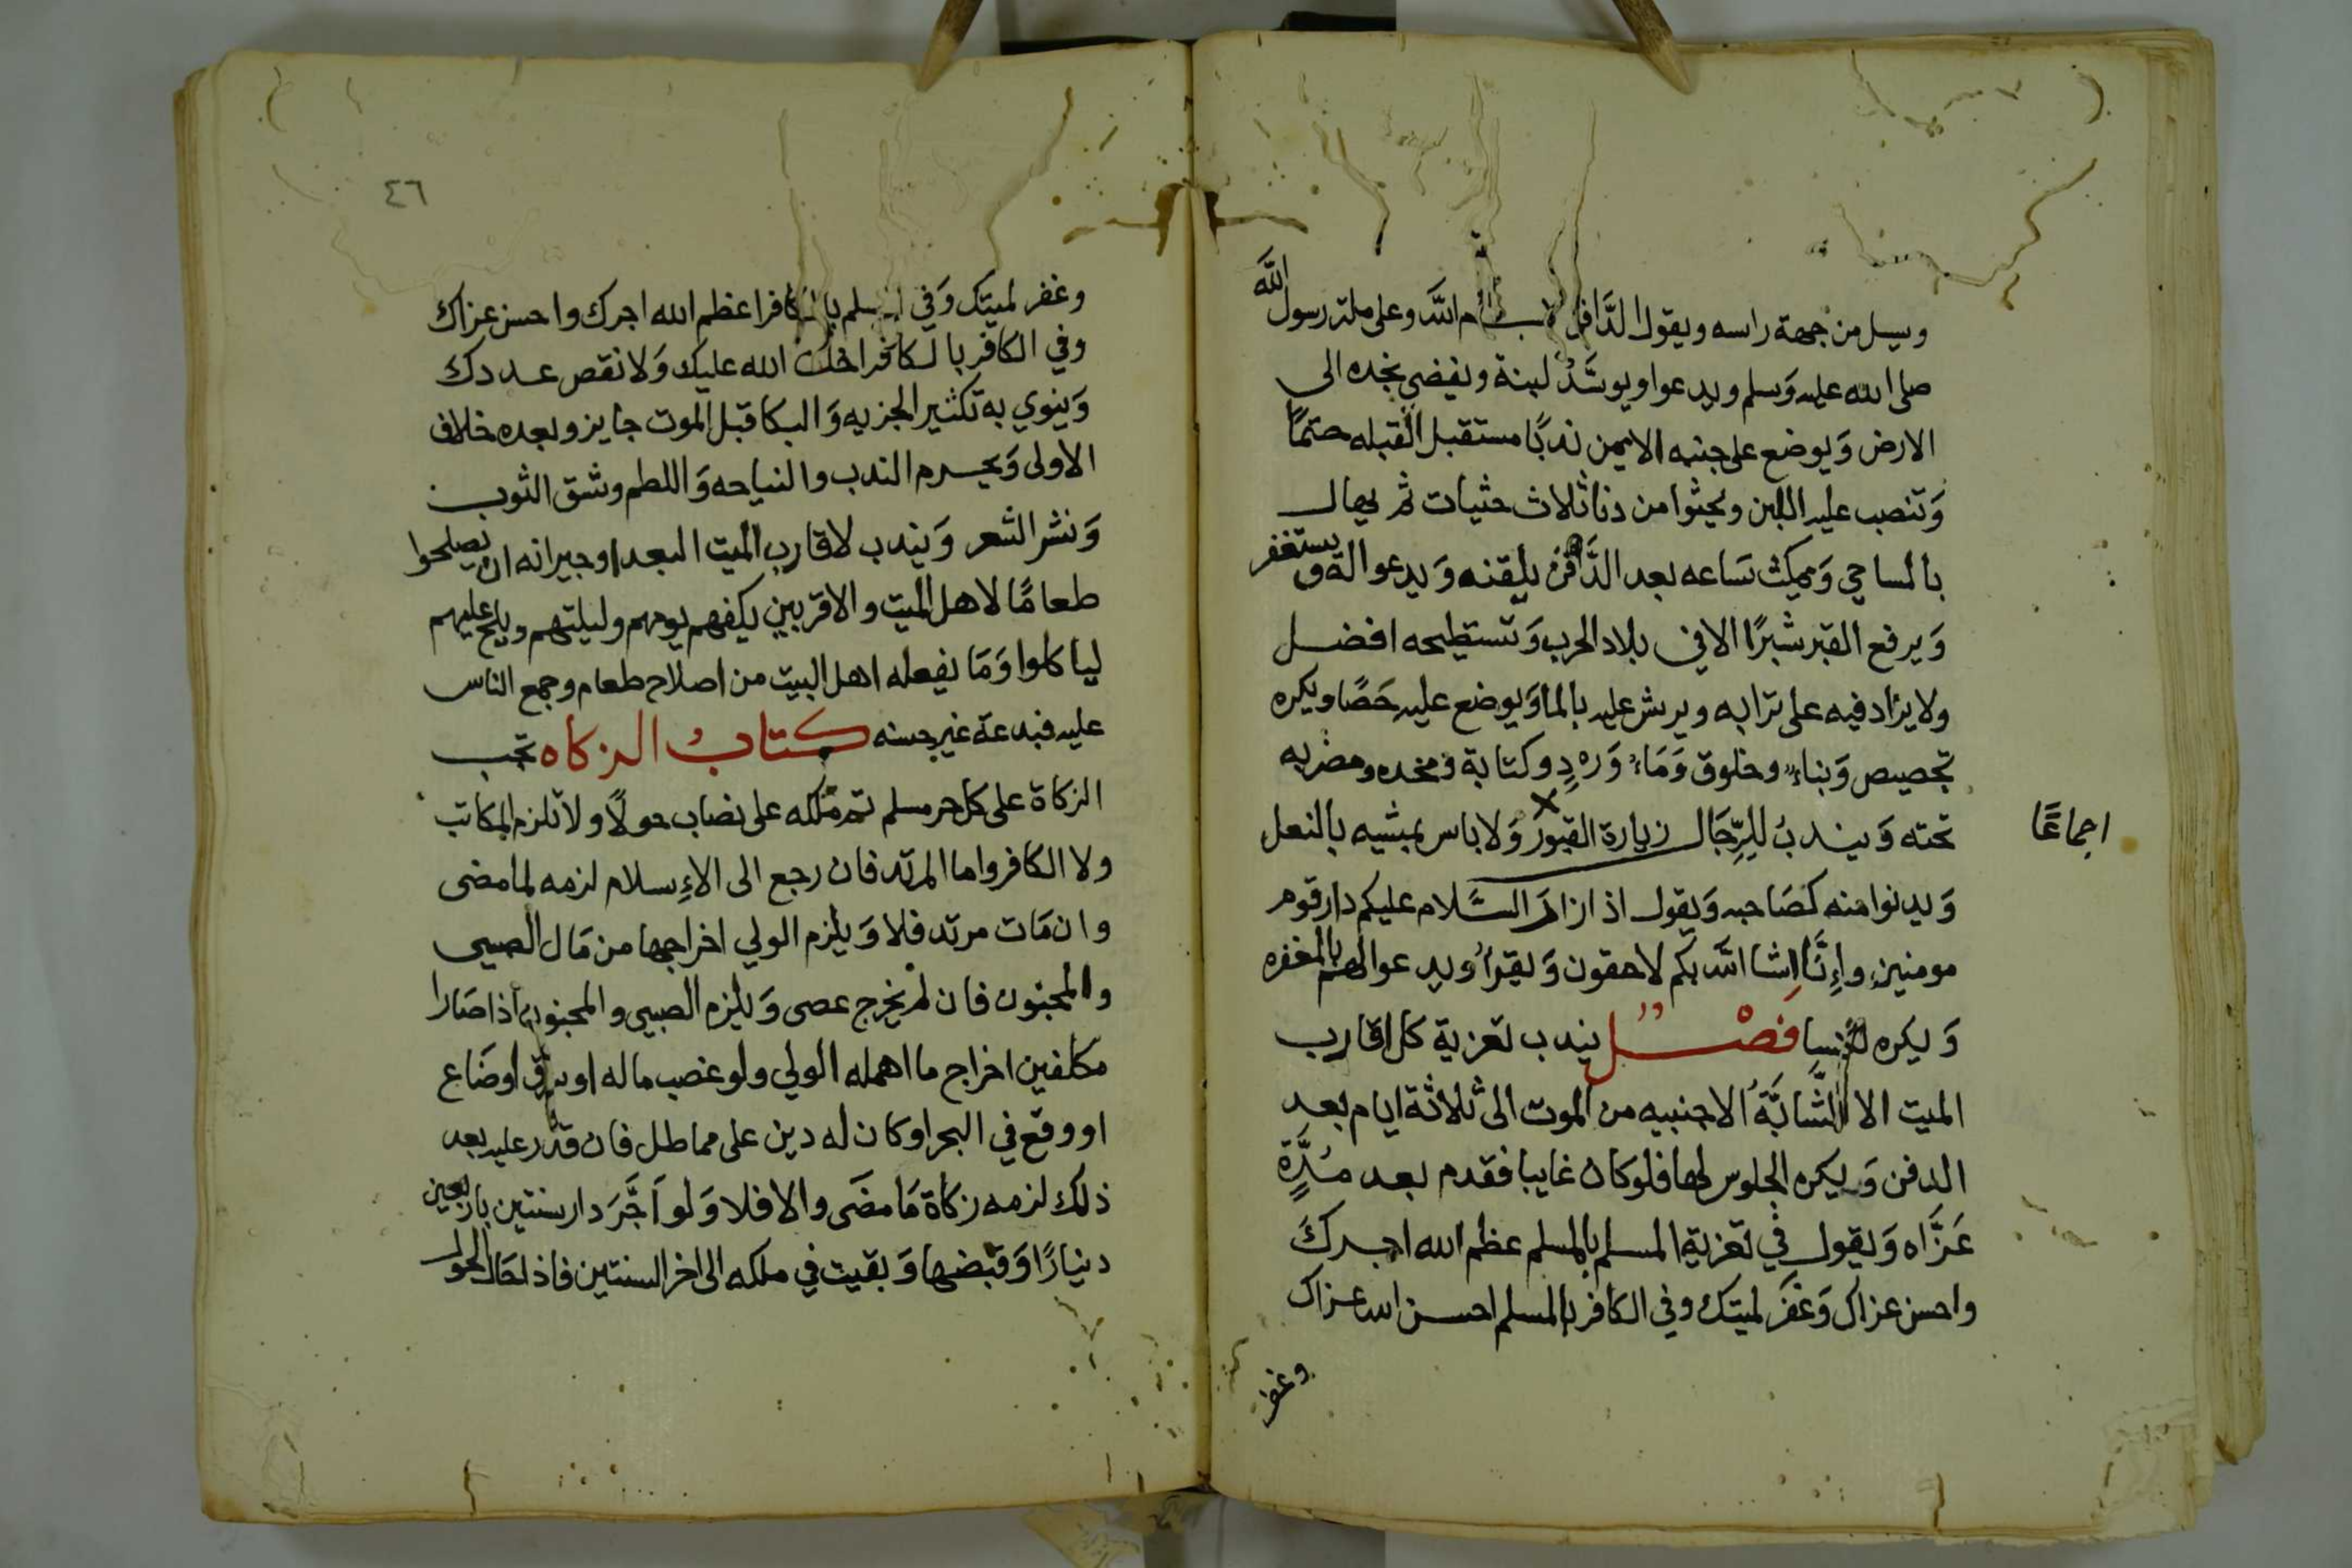 ويسل من جهة راسه ويقول الدَّافن بسم اللّه وعلى ملة رسول اللّه
صلى الله عليه وَسلم ويدعوا ويوسَّدُ لبنة ويفضي بخده الى
الارض وَيوضع على جنبه الايمن ندبًا مستقبل القبله حتمًا
وَتنصب عليه اللبن ويحثوا من دنا ثلاث حثيات ثم يهال
بالمساحي وَيمكث ساعه بعد الدَّفن يلقنه وَيدعوا له ويستغفر
وَيرفع القبر شبرًا الا في بلاد الحرب وَتستطيحه افضل
ولا يزاد فيه على ترابه ويرش عليه بالما وَيوضع عليه حَصًا ويكره
تجصيص وَبناءٌ وخلوق وَمَاءٌ وَرهٍ دٍ وكتابة ومخده ومضربه
تحته وَيندبُ للِرِّجَال زيارة القبور وَلا باس بمشيه بالنعل
اجماعًا
وَيدنوا منه كصَاحبه وَيقول اذا زار السَّلام عليكم دار قوم
مومنين وإِنَّا اِنشا اللّه بكم لاحقون وَيقرأُ ويدعوا لهم بالمغفره
وَيكره للنسا فَصْلٌ يندب تعزية كل اقارب
الميت الا الشَّابَّةُ الاجنبيه من الموت الى ثلاثة ايام بعد
الدفن وَيكره الجلوس لها فلو كان غايبا فقدم بعد مُدَّةٍ
عَزَّاه وَيقول في تعزية المسلم بالمسلم عظم الله اجرك
واحسن عزاك وَغفرَ لميتك وفي الكافر بالمسلم احسن الله عزاك
وغفر
٤٦
وغفر لميتك وَفي المسلم بالكافر اعظم الله اجرك واحسن عزاك
وفي الكافر بالكافر اخلف الله عليك وَلا نقص عددك
وَينوي به تكثير الجزيه وَالبكا قبل الموت جايز وبعده خلاف
الاولى وَيحرم الندب والنياحه وَاللطم وشق الثوب
وَنشر الشعر وَيندب لاقارب الميت البعدا وجيرانه ان يصلحوا
طعامًا لاهل الميت والاقربين يكفهم يومهم وليلتهم ويلح عليهم
لياكلوا وَمَا يفعله اهل البيت من اصلاح طعام وجمع الناس
عليه فبدعة غير حسنه كتابُ الزكاه تجب
الزكاة على كل حر مسلم تم ملكه على نصاب حولاً ولا تلزم المكاتب
ولا الكافر واما المرتد فان رجع الى الاِسلام لزمه لما مضى
وان مَات مرتد فلا وَيلزم الولي اخراجها من مَال الصبي
والمجنون فان لم يخرج عصى وَيلزم الصبي والمجنون اذا صَارا
مكلفين اخراج ما اهمله الولي ولو غصب ماله او سرق اوضَاع
او وقع في البحر او كان له دين على مماطل فان قدر عليه بعد
ذلك لزمه زكاة مَا مضَى والا فلا وَلو اَجَّرَ دار سنتين باربعين
دينارًا وَقبضها وَبقيت في ملكه الى اخر السنتين فاذا حَال الحول